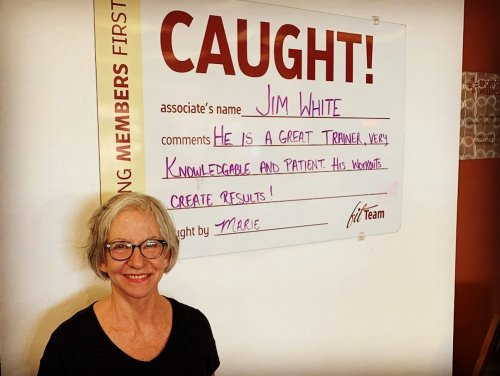 CAUGHT!
associate's name JIM WHITE
comments HE IS A GREAT TRAINER, VERY
KNOWLEDGABLE AND PATIENT. HIS WORKOUTS
CREATE RESULTS!
ught by MARIE
fit Team
NG MEMBERS FIRST